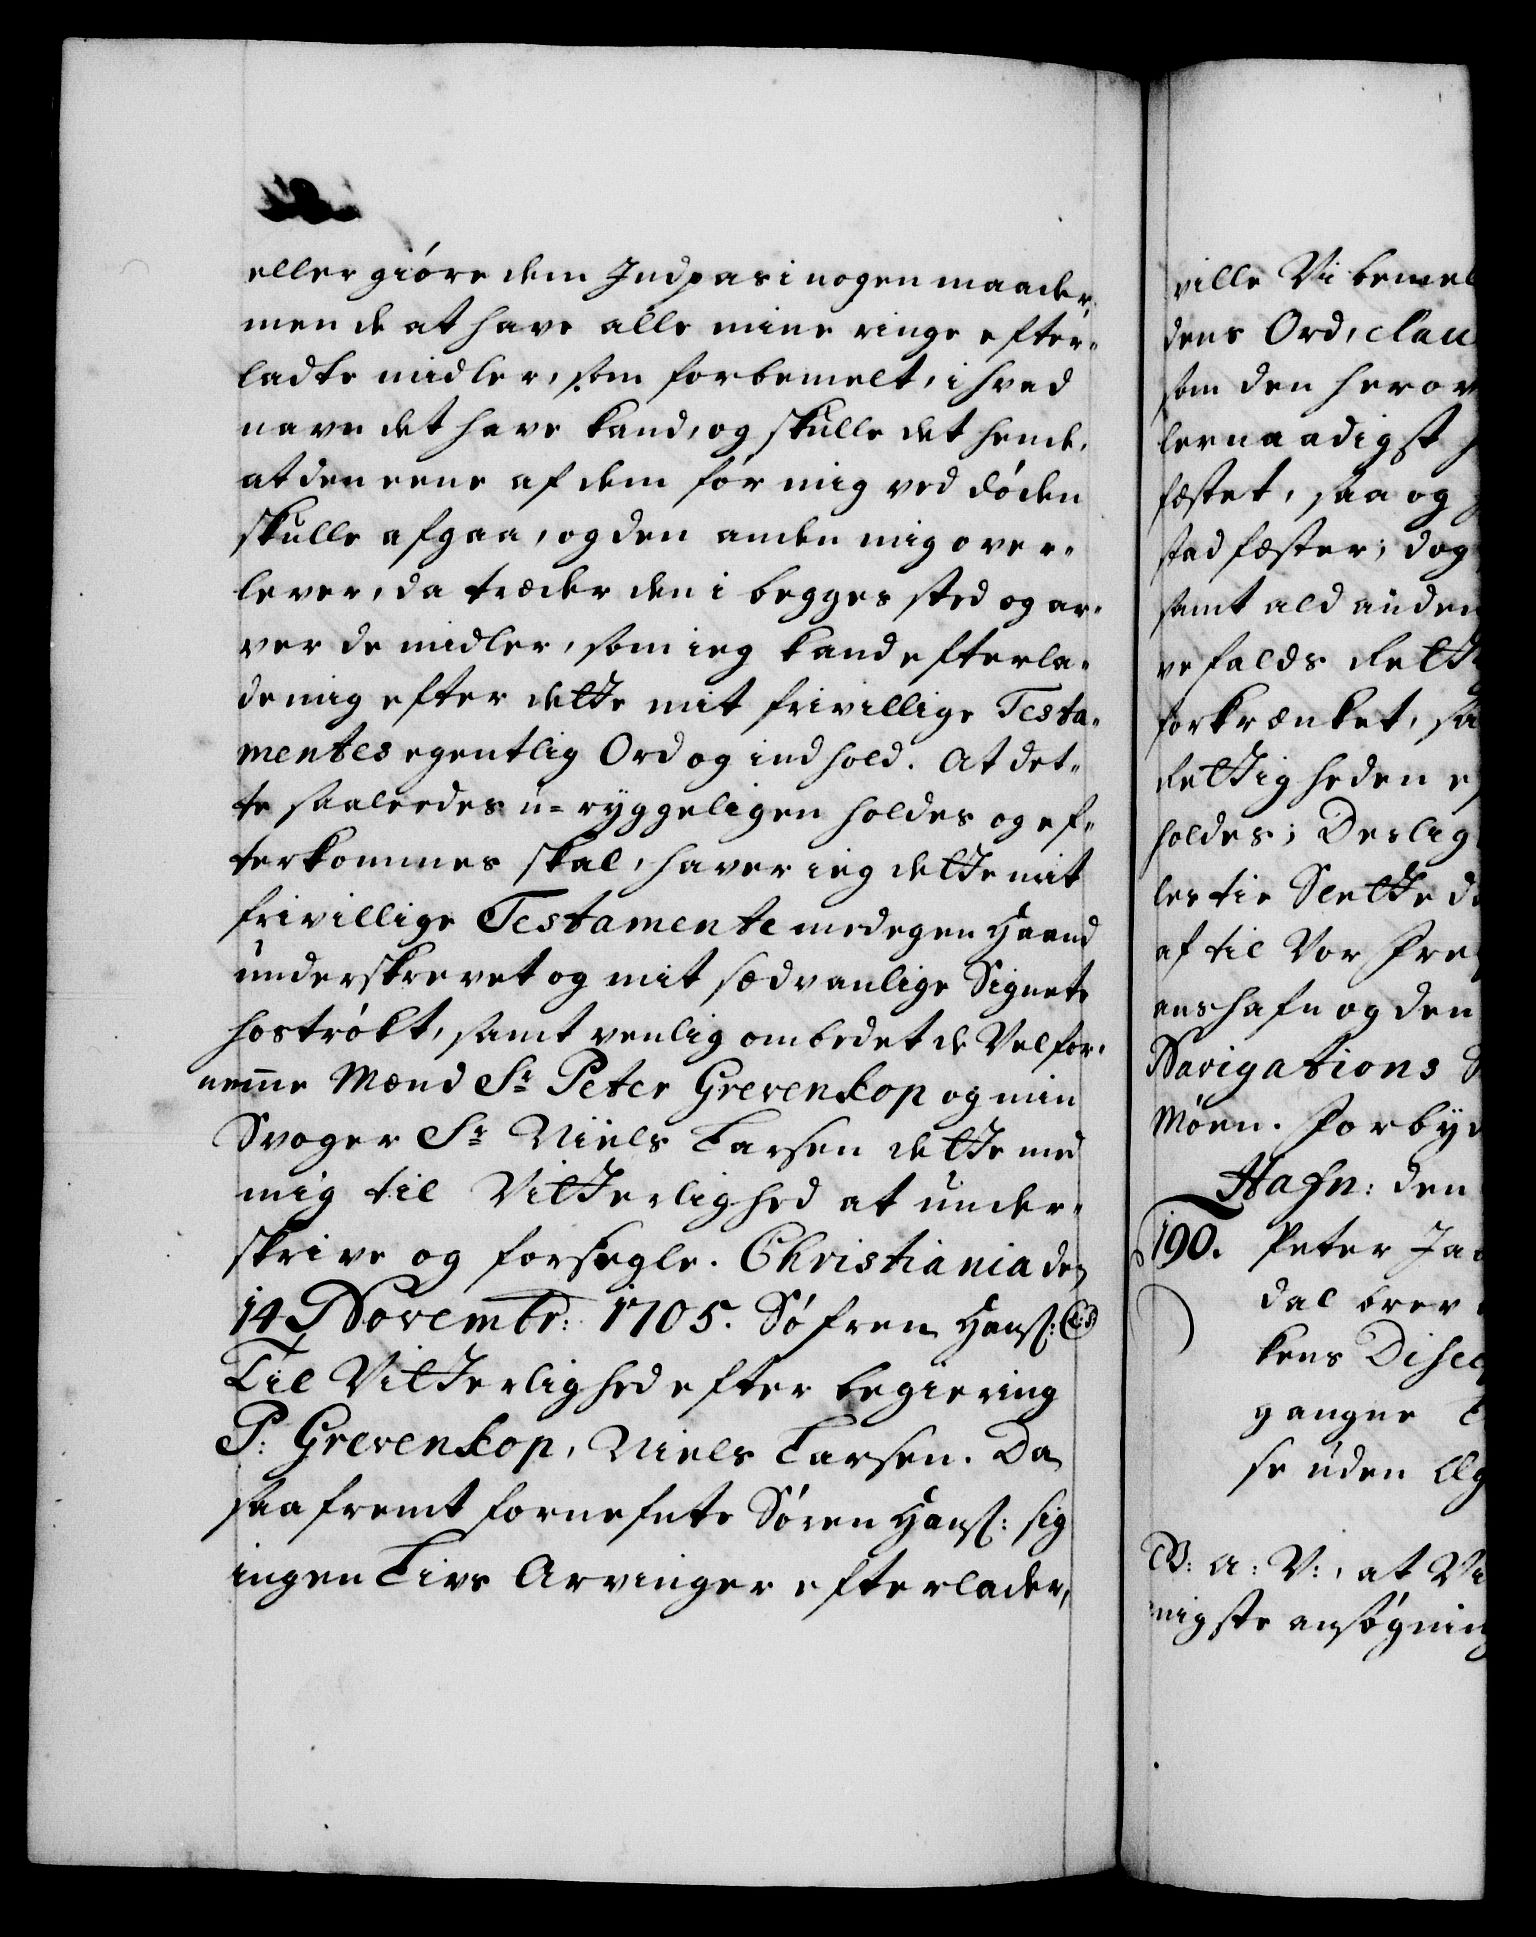 eller giöre dem Indpas i nogen maader,
men de at have alle mine ringe efter-
ladte midler, som forbemelt, i hvad
navn det have kand, og skulle det hende,
at den eene af dem för mig ved döden
skulle afgaa, og den anden mig over-
lever, da træder den i begges sted og ar-
ver de midler, som ieg kand efterla-
de mig efter dette mit frivillige Testa-
mentes egentlig Ord og indhold. At det-
te saaleedes u-ryggeligen holdes og ef-
terkommes skal, haver ieg dette mit
frivillige Testamente med egen Haand
underskrevet og mit sædvanlige Signete
hoströkt, samt venlig ombedet de Velfor-
nemme Mænd Sr Peter Grevenkop og min
Svoger Sr Niels Larsen dette med
mig til Vitterlighed at under-
skrive og forsegle. Christiania den
14 Novembr: 1705. Söfren Hans: (L:S)
Til Vitterlighed efter begiering
P: Grevenkop, Niels Larsen. Da
saafremt fornefnte Sören Hans: sig
ingen Livs Arvinger efterlader,
ville Vi bemel
dens Ord, clau
som den herov
lernaadigst
fæstet, saa og
stadfæster; dog
samt ald anden
vefalds Rett
forkrænket, sa
Rettigheden e
holdes; Deslig
lestie Slette d
af til Vor Fre
enshafn og den
Navigations
Möen. Forbyd
Hafn: den
190. Peter Ja
dal brev
kens Disci
gangne
se uden Æg
G: A: V:, at Vi
nigste ansögning